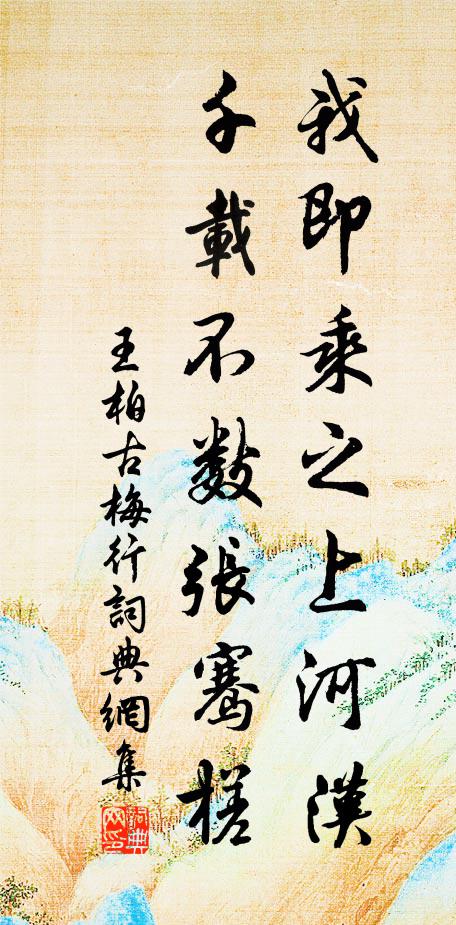 我即乘之上河漢
千載不數張騫槎
王柏古梅行詞典網集
詞典网印